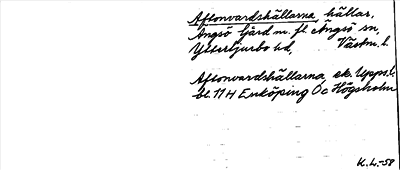 Aftonvardshällarna, hällar,
Ängsö Gård m. fl. Ängsö sn,
Yttertjurbo hd, Västm. l.
Aftonvardshällarna ek. Upps. l.
bl. 11H Enköping Öc Högsholm
K. L. -58